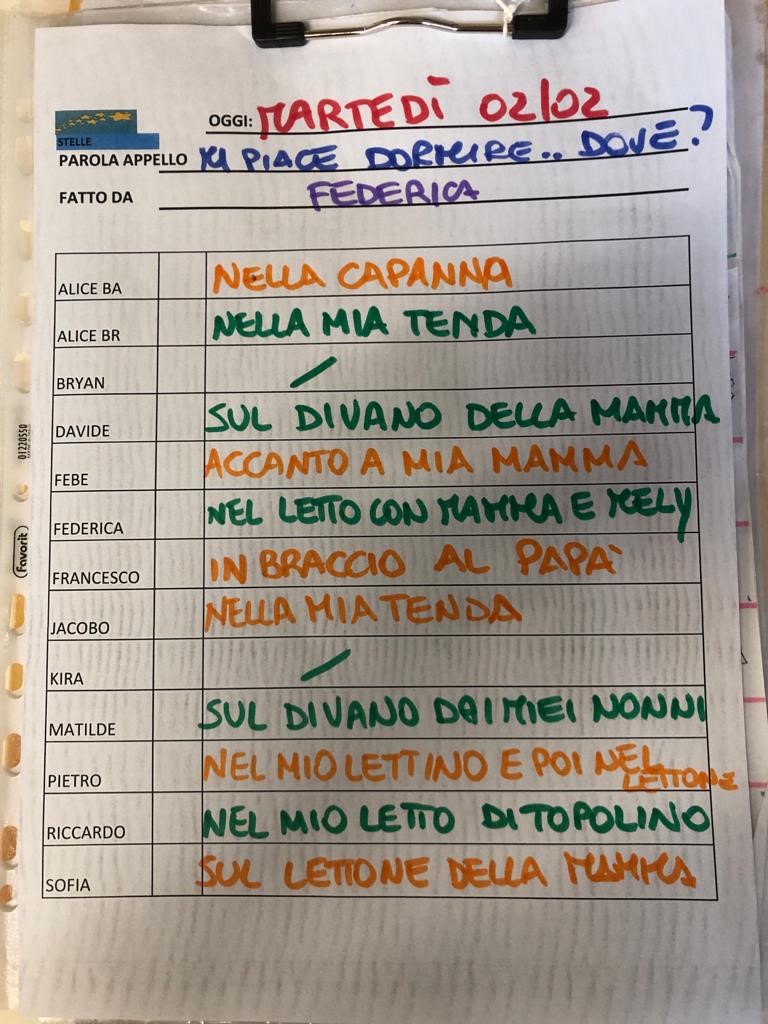 OGGI: MARTEDÌ 02/02
STELLE
PAROLA APPELLO MI PIACE DORMIRE.. DOVE?
FATTO DA FEDERICA
ALICE BA NELLA CAPANNA
ALICE BR NELLA MIA TENDA
BRYAN /
DAVIDE SUL DIVANO DELLA MAMMA
FEBE ACCANTO A MIA MAMMA
FEDERICA NEL LETTO CON MAMMA E MELY
FRANCESCO IN BRACCIO AL PAPA'
JACOBO NELLA MIA TENDA
KIRA /
MATILDE SUL DIVANO DEI MIEI NONNI
PIETRO NEL MIO LETTINO E POI NEL
LETTONE
RICCARDO NEL MIO LETTO DI TOPOLINO
SOFIA SUL LETTONE DELLA MAMMA
01220550
Favorit